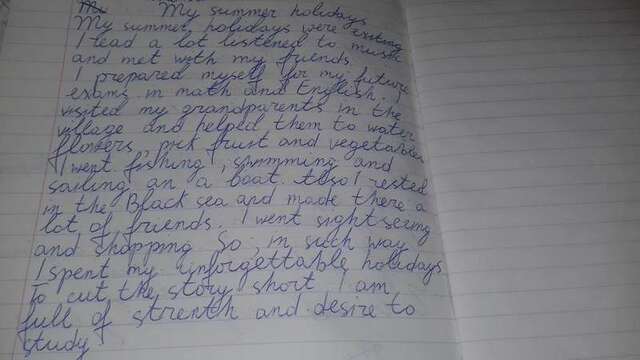 My summer holidays
My summer holidays were exiting
I read a lot listened to music
and met with my friends
I prepared myself for my future
exams in math and English. I
visited my grandparents in the
village and helped them to water
flowers, pick fruit and vegetables
I went fishing, swimming and
sailing on a boat. Also I rested
in the Black sea and made there a
lot of friends. I went sightseing
and shopping So, in such way
I spent my unforgettable holidays
To cut the story short I am
full of strenth and desire to
study